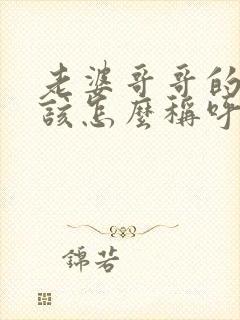 老婆哥哥的
該怎麼稱呼
錦若